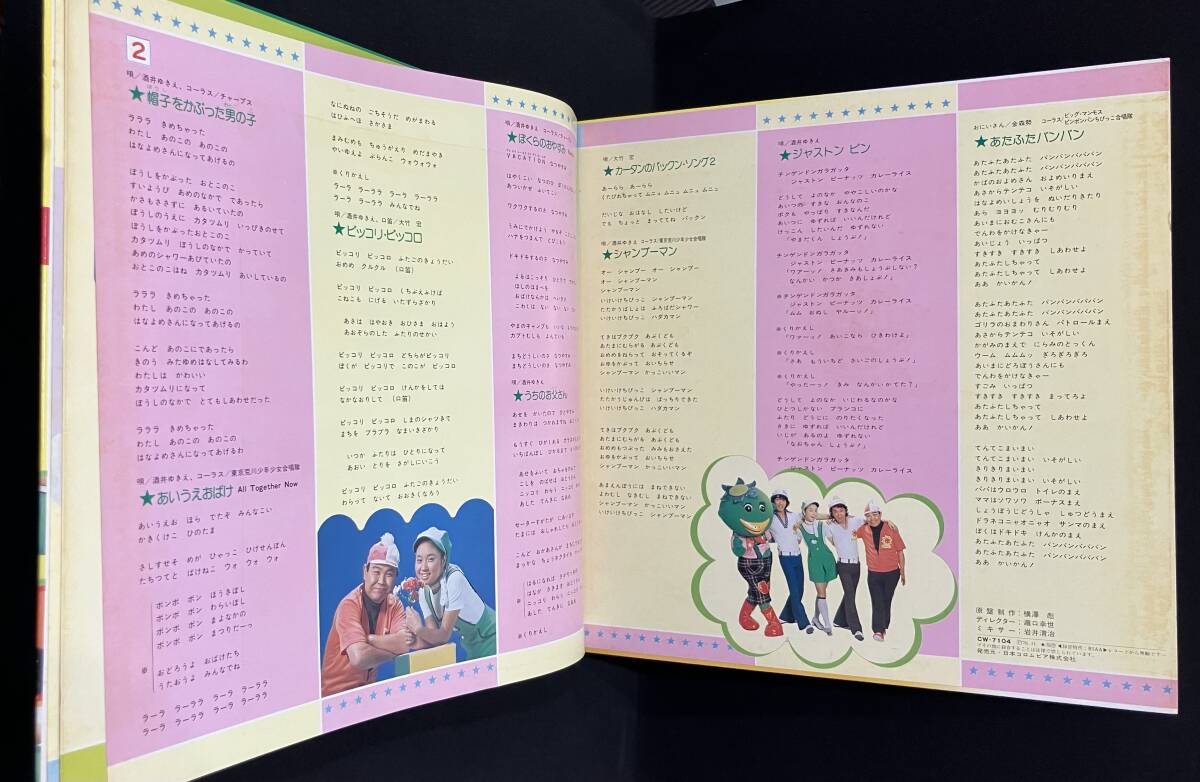 2
唄/酒井ゆきえ、コーラス/チャープス
★帽子をかぶった男の子
ラララ きめちゃった
わたし あのこの あのこの
はなよめさんになってあげるの
ぼうしをかぶった おとこのこ
すいようび あめのなかで であったら
かさもささずに あるいていたの
ぼうしのうえに カタツムリ いっぴきのせて
ぼうしをかぶったおとこのこ
カタツムリ ぼうしのなかで かっていて
あめのシャワーあびていたの
おとこのこはね カタツムリ あいしているの
ラララ きめちゃった
わたし あのこの あのこの
はなよめさんになってあげるの
こんど あのこにであったら
きのう みたゆめはなしてみるわ
わたしは かわいい
カタツムリになって
ぼうしのなかで とてもしあわせだった
ラララ きめちゃった
わたし あのこの あのこの
はなよめさんになってあげるわ
唄/酒井ゆきえ、コーラス/東京荒川少年少女合唱隊
★あいうえおばけ All Together Now
あいうえお ほら でたぞ みんなこい
かきくけこ ひのたま
さしすせそ めが ひゃっこ ひげせんぼん
たちつてと ばけねこ ウォ ウォ ウォ
ボンボ ボン ほうきぼし
ボンボ ボン わらいぼし
ボンボ ボン まよなかの
ボンボ ボン まつりだーっ
※
おどろうよ おばけたち
うたおうよ みんなでね
ラーラ ラーララ ラーラ ラーララ
ラーラ ラーララ ラーラ ラーララ
なにぬねの ごちそうだ めがまわる
はひふへほ さかさま
まみむめも ちゅうがえり めだまやき
やいゆえよ ぶらんこ ウォウォウォ
※くりかえし
ラーラ ラーララ ラーラ ラーララ
ラーラ ラーララ みんなでね
唄/酒井ゆきえ、口笛/大竹 宏
★ピッコリ・ピッコロ
ピッコリ ピッコロ ふたごのきょうだい
おめめ クルクル (口笛)
ピッコリ ピッコロ くちぶえふけば
こねこも にげる いたずらざかり
あさは はやおき おひさま おはよう
あおぞらのした ふたりのせかい
ピッコリ ピッコロ どちらがピッコリ
ぼくが ピッコリで このこが ピッコロ
ピッコリ ピッコロ けんかをしては
なかなおりして (口笛)
ピッコリ ピッコロ しまのシャツきて
まちを ブラブラ なまいきざかり
いつか ふたりは ひとりになって
あおい とりを さがしにいこう
ピッコリ ピッコロ ふたごのきょうだい
わらって ないて おおきくなろう
★ぼくらのおやすみ
VACATION なつやすみ
★うちのお父さん
※くりかえし
唄/大竹 宏
★カータンのパックン・ソング2
あーらら あーらら
くたびれちゃって ムニュ ムニュ ムニュ ムニュ
だいじな おはなし したいけど
でも ちょっと まっててね パックン
唄/酒井ゆきえ コーラス/東京荒川少年少女合唱隊
★シャンプーマン
オー シャンプー オー シャンプー
オー シャンプーマン
シャンプーマン
いけいけちびっこ シャンプーマン
たたかうばしょは ふろばだシャワー
いけいけちびっこ ハダカマン
てきはブクブク あぶくども
あたまにむらがる あぶくども
おめめをねらって おそってくるぞ
おゆをかぶって おいちらせ
シャンプーマン かっこいいマン
いけいけちびっこ シャンプーマン
たたかうじゅんびは ばっちりできた
いけいけちびっこ ハダカマン
てきはブクブク あぶくども
あたまにむらがる あぶくども
おめめもつぶった みみもおさえた
おゆをかぶって おいちらせ
シャンプーマン かっこいいマン
あまえんぼうには まねできない
よわむし なきむし まねできない
シャンプーマン かっこいいマン
いけいけちびっこ シャンプーマン
いけいけちびっこ シャンプーマン
唄/酒井ゆきえ
★ジャストン ビン
チンゲンドンガラガッタ
ジャストン ビーナッツ カレーライス
どうして よのなか ややこしいのかな
あいつの すきな おんなのこ
ボクも やっぱり すきなんだ
あいつに ゆずれば いいんだけれど
けっこん したいんだ ゆずれない
「やまだくん しょうぶ!」
チンゲンドンガラガッタ
ジャストン ビーナッツ カレーライス
「ワアーッ! さあきみもしょうぶしない?
なんかい かつか さあしょぶ!」
※チンゲンドンガラガッタ
ジャストン ビーナッツ カレーライス
「ムム おぬし ヤルーッ!」
※くりかえし
「ワァーッ! あいこなら ひきわけよ」
※くりかえし
「さあ もういちど さいごのしょうぶ!」
※くりかえし
「やったーッ! きみ なんかいかてた?」
どうして よのなか いじわるなのかな
ひとつしかない ブランコに
ふたり どうじに のりたくなった
さきに ゆずれば いいんだけれど
いじが あるのよ ゆずれない
「なおちゃん しょうぶ!」
チンゲンドンガラガッタ
ジャストン ビーナッツ カレーライス
おにいさん/金森勢 コーラス/ビッグ・マンモス、ピンポンパンちびっこ合唱隊
★あたふたパンパン
あたふたあたふた パンパンパパパン
あたふたあたふた パンパンパパパン
かばのおよめさん およめいりまえ
あさからテンテコ いそがしい
はなよめいしょうを ぬいだりきたり
あら ヨヨヨッ むりむりむり
あいまにおむこさんにも
でんわをかけなきゃー
あいじょう いっぱつ
すきすき すきすき しあわせよ
あたふたしちゃって
あたふたしちゃって しあわせよ
ああ かいかん!
あたふたあたふた パンパンパパパン
あたふたあたふた パンパンパパパン
ゴリラのおまわりさん パトロールまえ
あさからテンテコ いそがしい
かがみのまえで にらみのとっくん
ウーム ムムムッ ぎろぎろぎろ
あいまにどろぼうさんにも
でんわをかけなきゃー
すごみ いっぱつ
すきすき すきすき まってろよ
あたふたしちゃって
あたふたしちゃって しあわせよ
ああ かいかん!
てんてこまいまい
てんてこまいまい いそがしい
きりきりまいまい
きりきりまいまい いそがしい
パパはウロウロ トイレのまえ
ママはソワソワ ボーナスまえ
しょうぼうじどうしゃ しゅつどうまえ
ドラネコニャオニャオ サンマのまえ
ぼくはドキドキ けんかのまえ
あたふたあたふた パンパンパパパン
あたふたあたふた パンパンパパパン
ああ かいかん!
原盤制作-横澤 彪
ディレクター-瀧口幸世
ミキサー-岩井清治
CW-7104
発売元・日本コロムビア株式会社